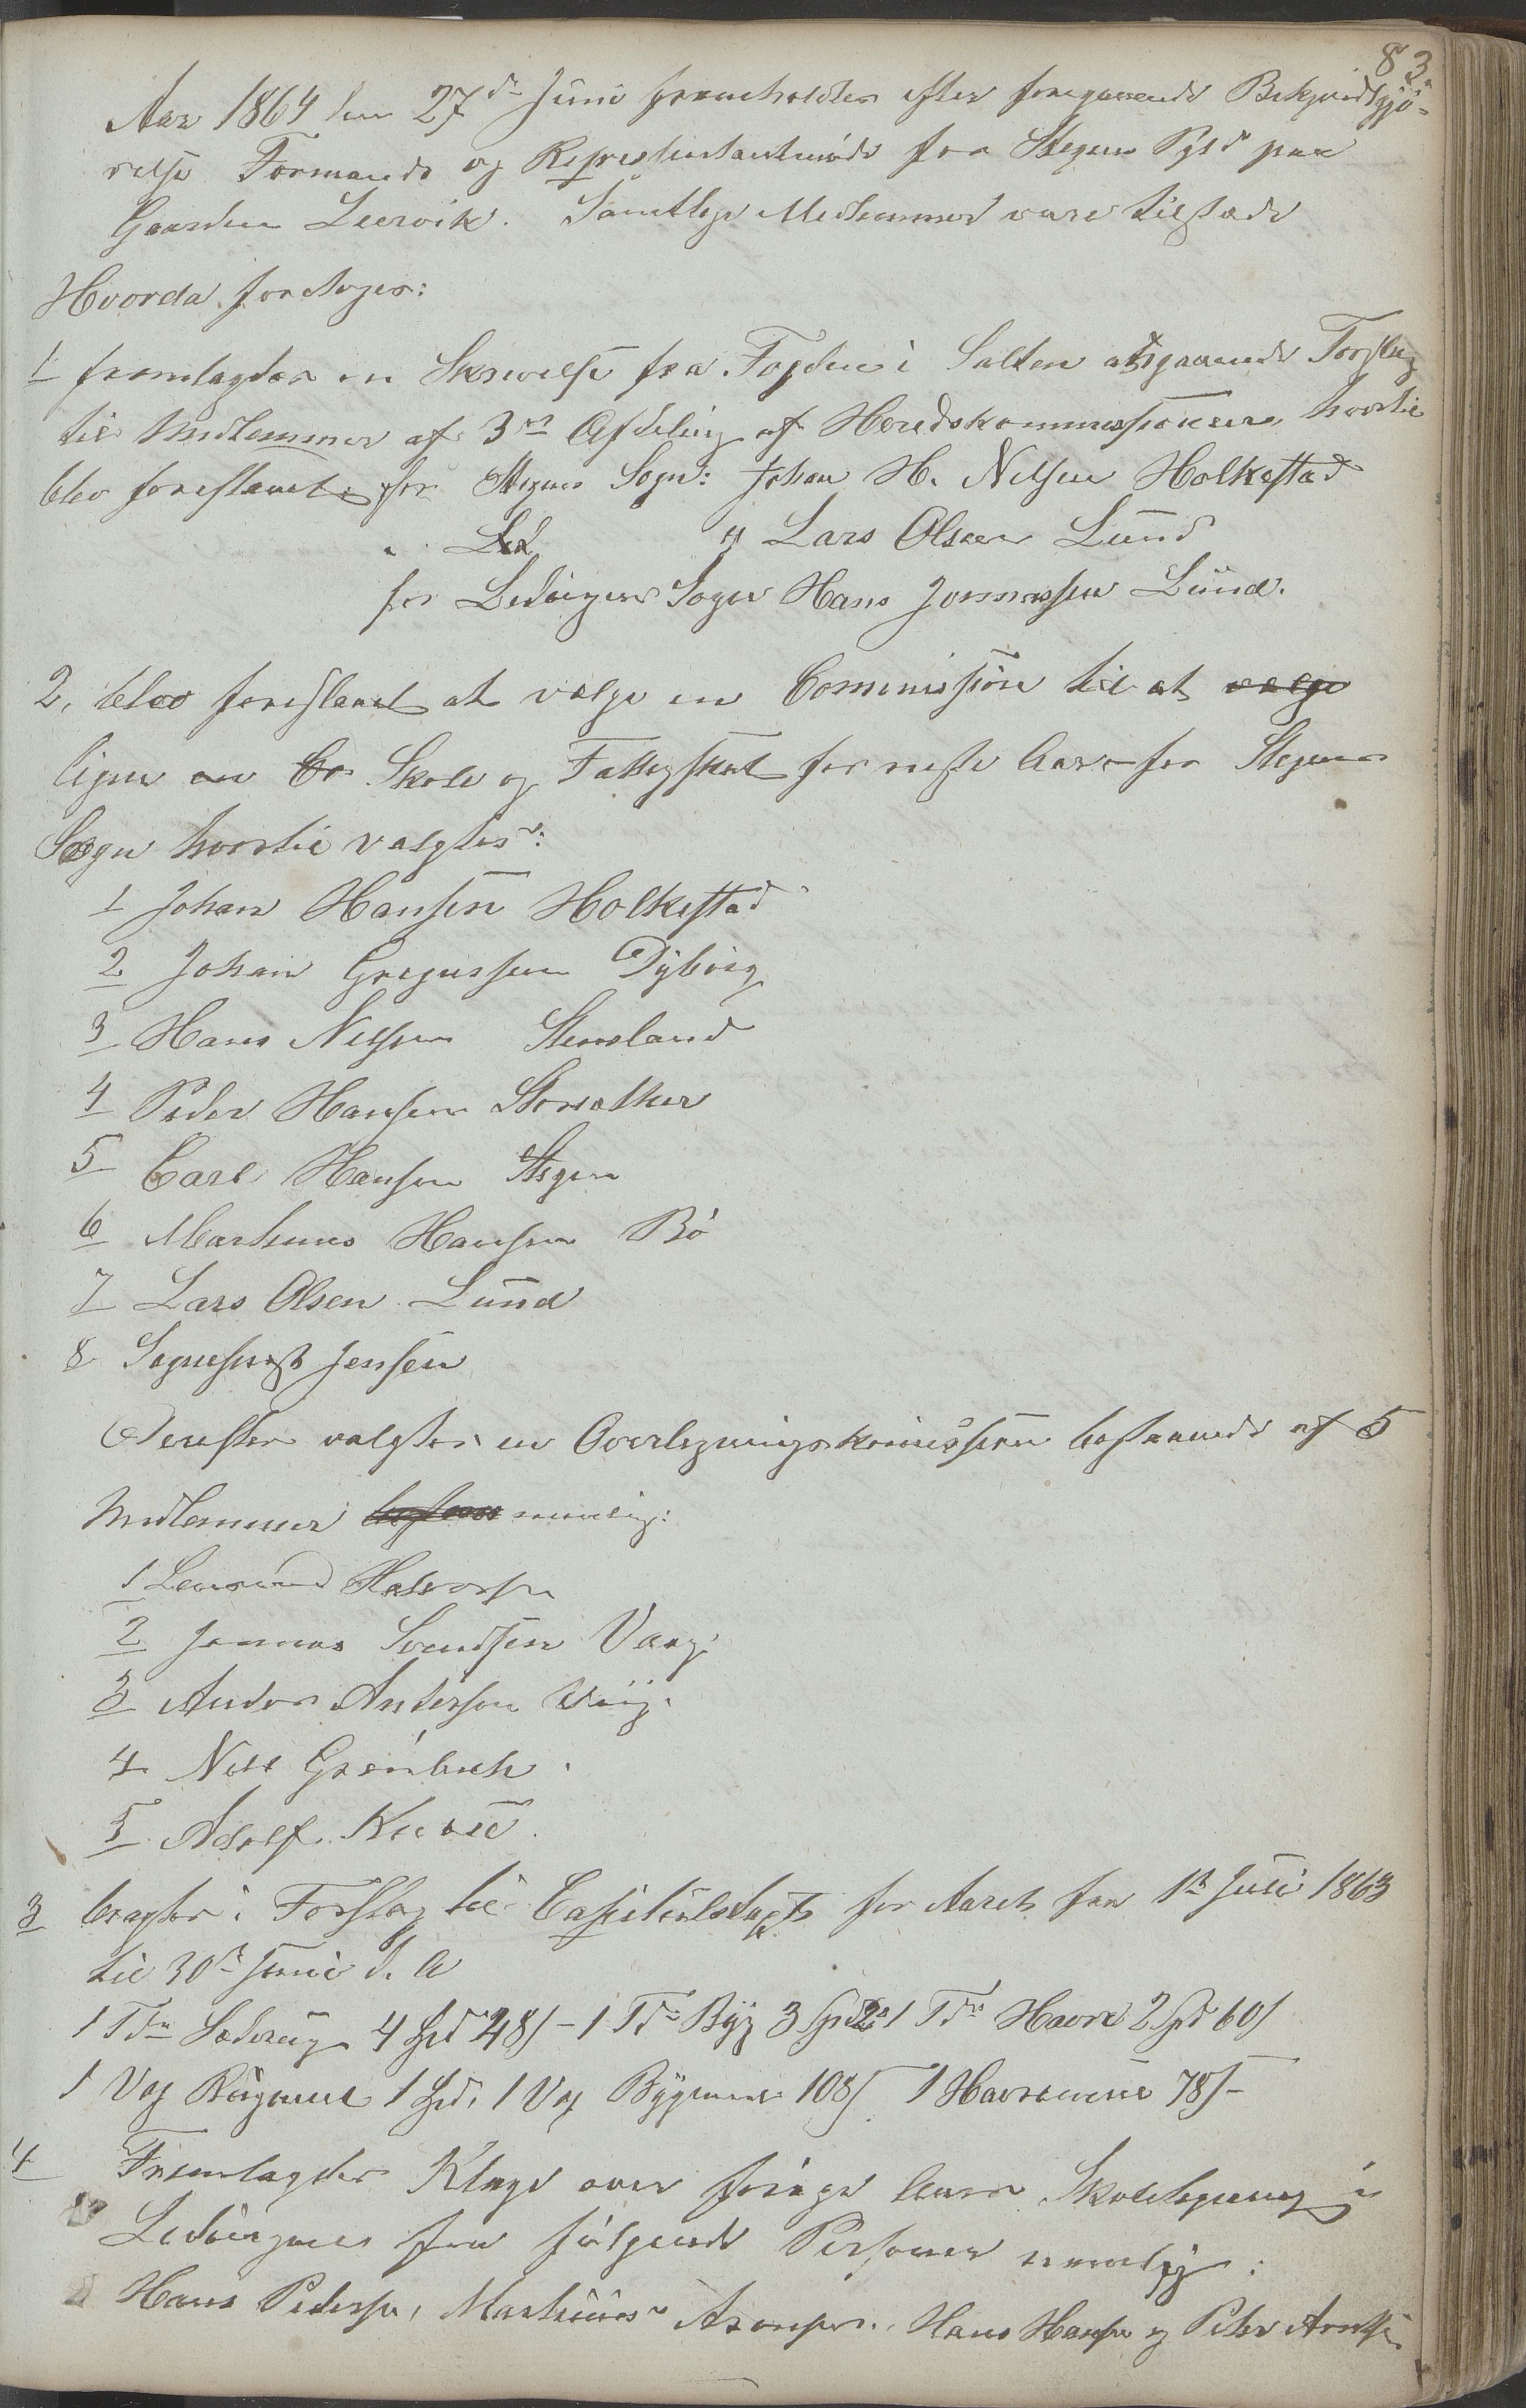 83
Aar 1864 den 27de Juni fremholdtes efter foregaaende Bekjendtgjö-
relse Formands og Repræsentantmøde for Stegens Pgld paa
Gaarden Leervik. Samtlige Medlemmer vare tilstæde
Hvorda foretoges:
1 fremlagdes en Skrivelse fra Fogden i Salten angaaende Forslag
til Medlemmer af 3die Afdeling af Heredskommissionen, hvortil
blev foreslaaet for Stegens Sogn: Johan H. Nilsen Holkestad
" Led " Lars Olsen Lund
for Ledingens Sogn Hans Jonnassen Lund.
2, blev foreslaaet at vælge en Commission til at vælge
ligne en Co Skole og Fattigskat for neste Aar for Stegens
Sogn hvortil valgtes:
1 Johan Hansen Holkestad
2 Johan Gregussen Dyping
3 Hans Nilsen Stensland
4 Peder Hansen
5 Carl Hansen Stegen
6 Markuus Hansen Bö
7 Lars Olsen Lund
8 Sogneprest Jensen
Derefter valgtes en Overligningskommission bestaaende af 5
Medlemmer nemlig:
1 Halvorsen
2 Jonnas Svendsen Vaag
3 Andor Andersen Viig
4 Nils Grønbech
5 Adolf
3 bragtes i Forslag til Capitelstagst for Aaret fra 1st Juli 1863
til 30te Juni d. A
1 Tde Sæderug 4 Spd 48 s - 1 Tde Byg 3 Spd 1 Tde Havre 2 Spd 60 s
1 Vog Rugmeel 1 Spd, 1 Vog Bygmeel 108 s 1 Havremeel 78 s -
4 Fremlagdes Klage over forige Aars Skoleligning i
Ledingen fra følgende Personer nemlig:
Hans Pedersen, Markuus Aronsen, Hans Hansen og Peder Arntsen